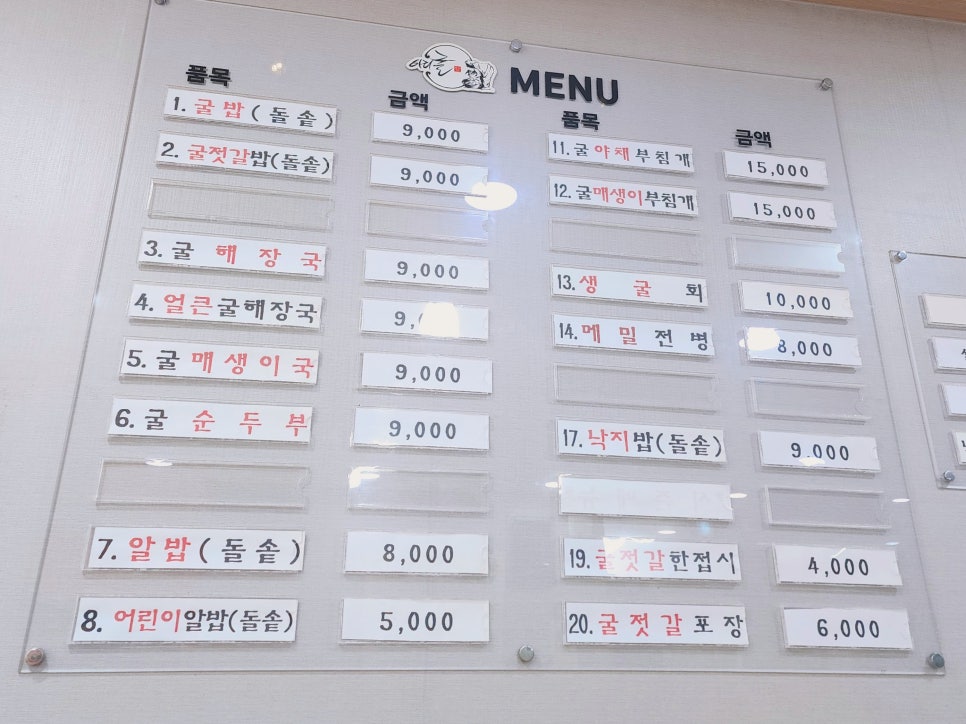 어리굴
MENU
품목 금액
1. 굴밥(돌솥) 9,000
2. 굴젓갈밥(돌솥) 9,000
3. 굴해장국 9,000
4. 얼큰굴해장국 9,
5. 굴매생이국 9,000
6. 굴순두부 9,000
7. 알밥(돌솥) 8,000
8. 어린이알밥(돌솥) 5,000
품목 금액
11. 굴야채부침개 15,000
12. 굴매생이부침개 15,000
13. 생굴회 10,000
14. 메밀전병 8,000
17. 낙지밥(돌솥) 9,000
19. 굴젓갈한접시 4,000
20. 굴젓갈포장 6,000